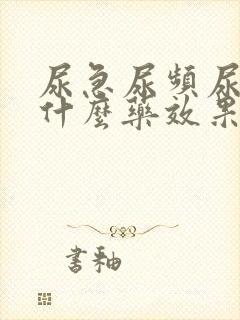 尿急尿頻尿
什麼藥效果
書釉